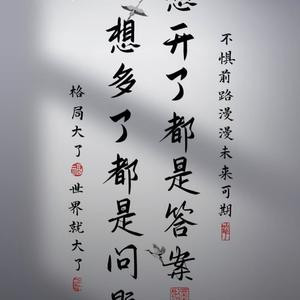 不惧前路漫漫未来可期
想开了都是答案
想多了都是问题
格局大了 世界就大了